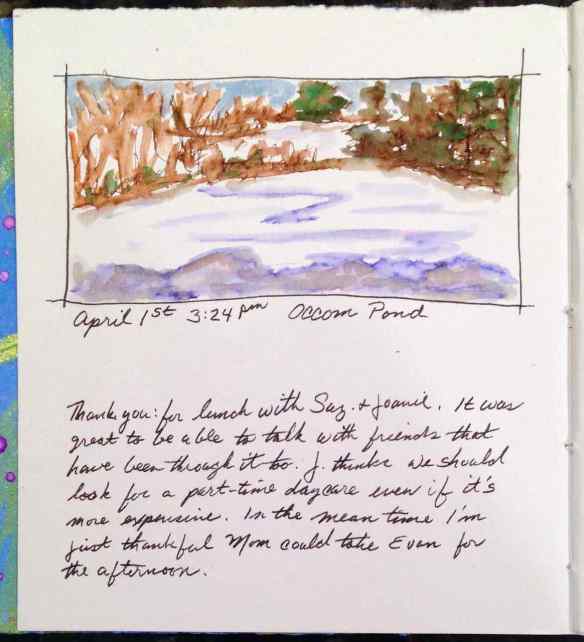 April 1st 3:24 pm Occom Pond
Thank you: for lunch with Suz. & Joanie. It was
great to be able to talk with friends that
have been through it too. J. thinks we should
look for a part-time daycare even if it's
more expensive. In the mean time I'm
just thankful Mom could take Evan for
the afternoon.